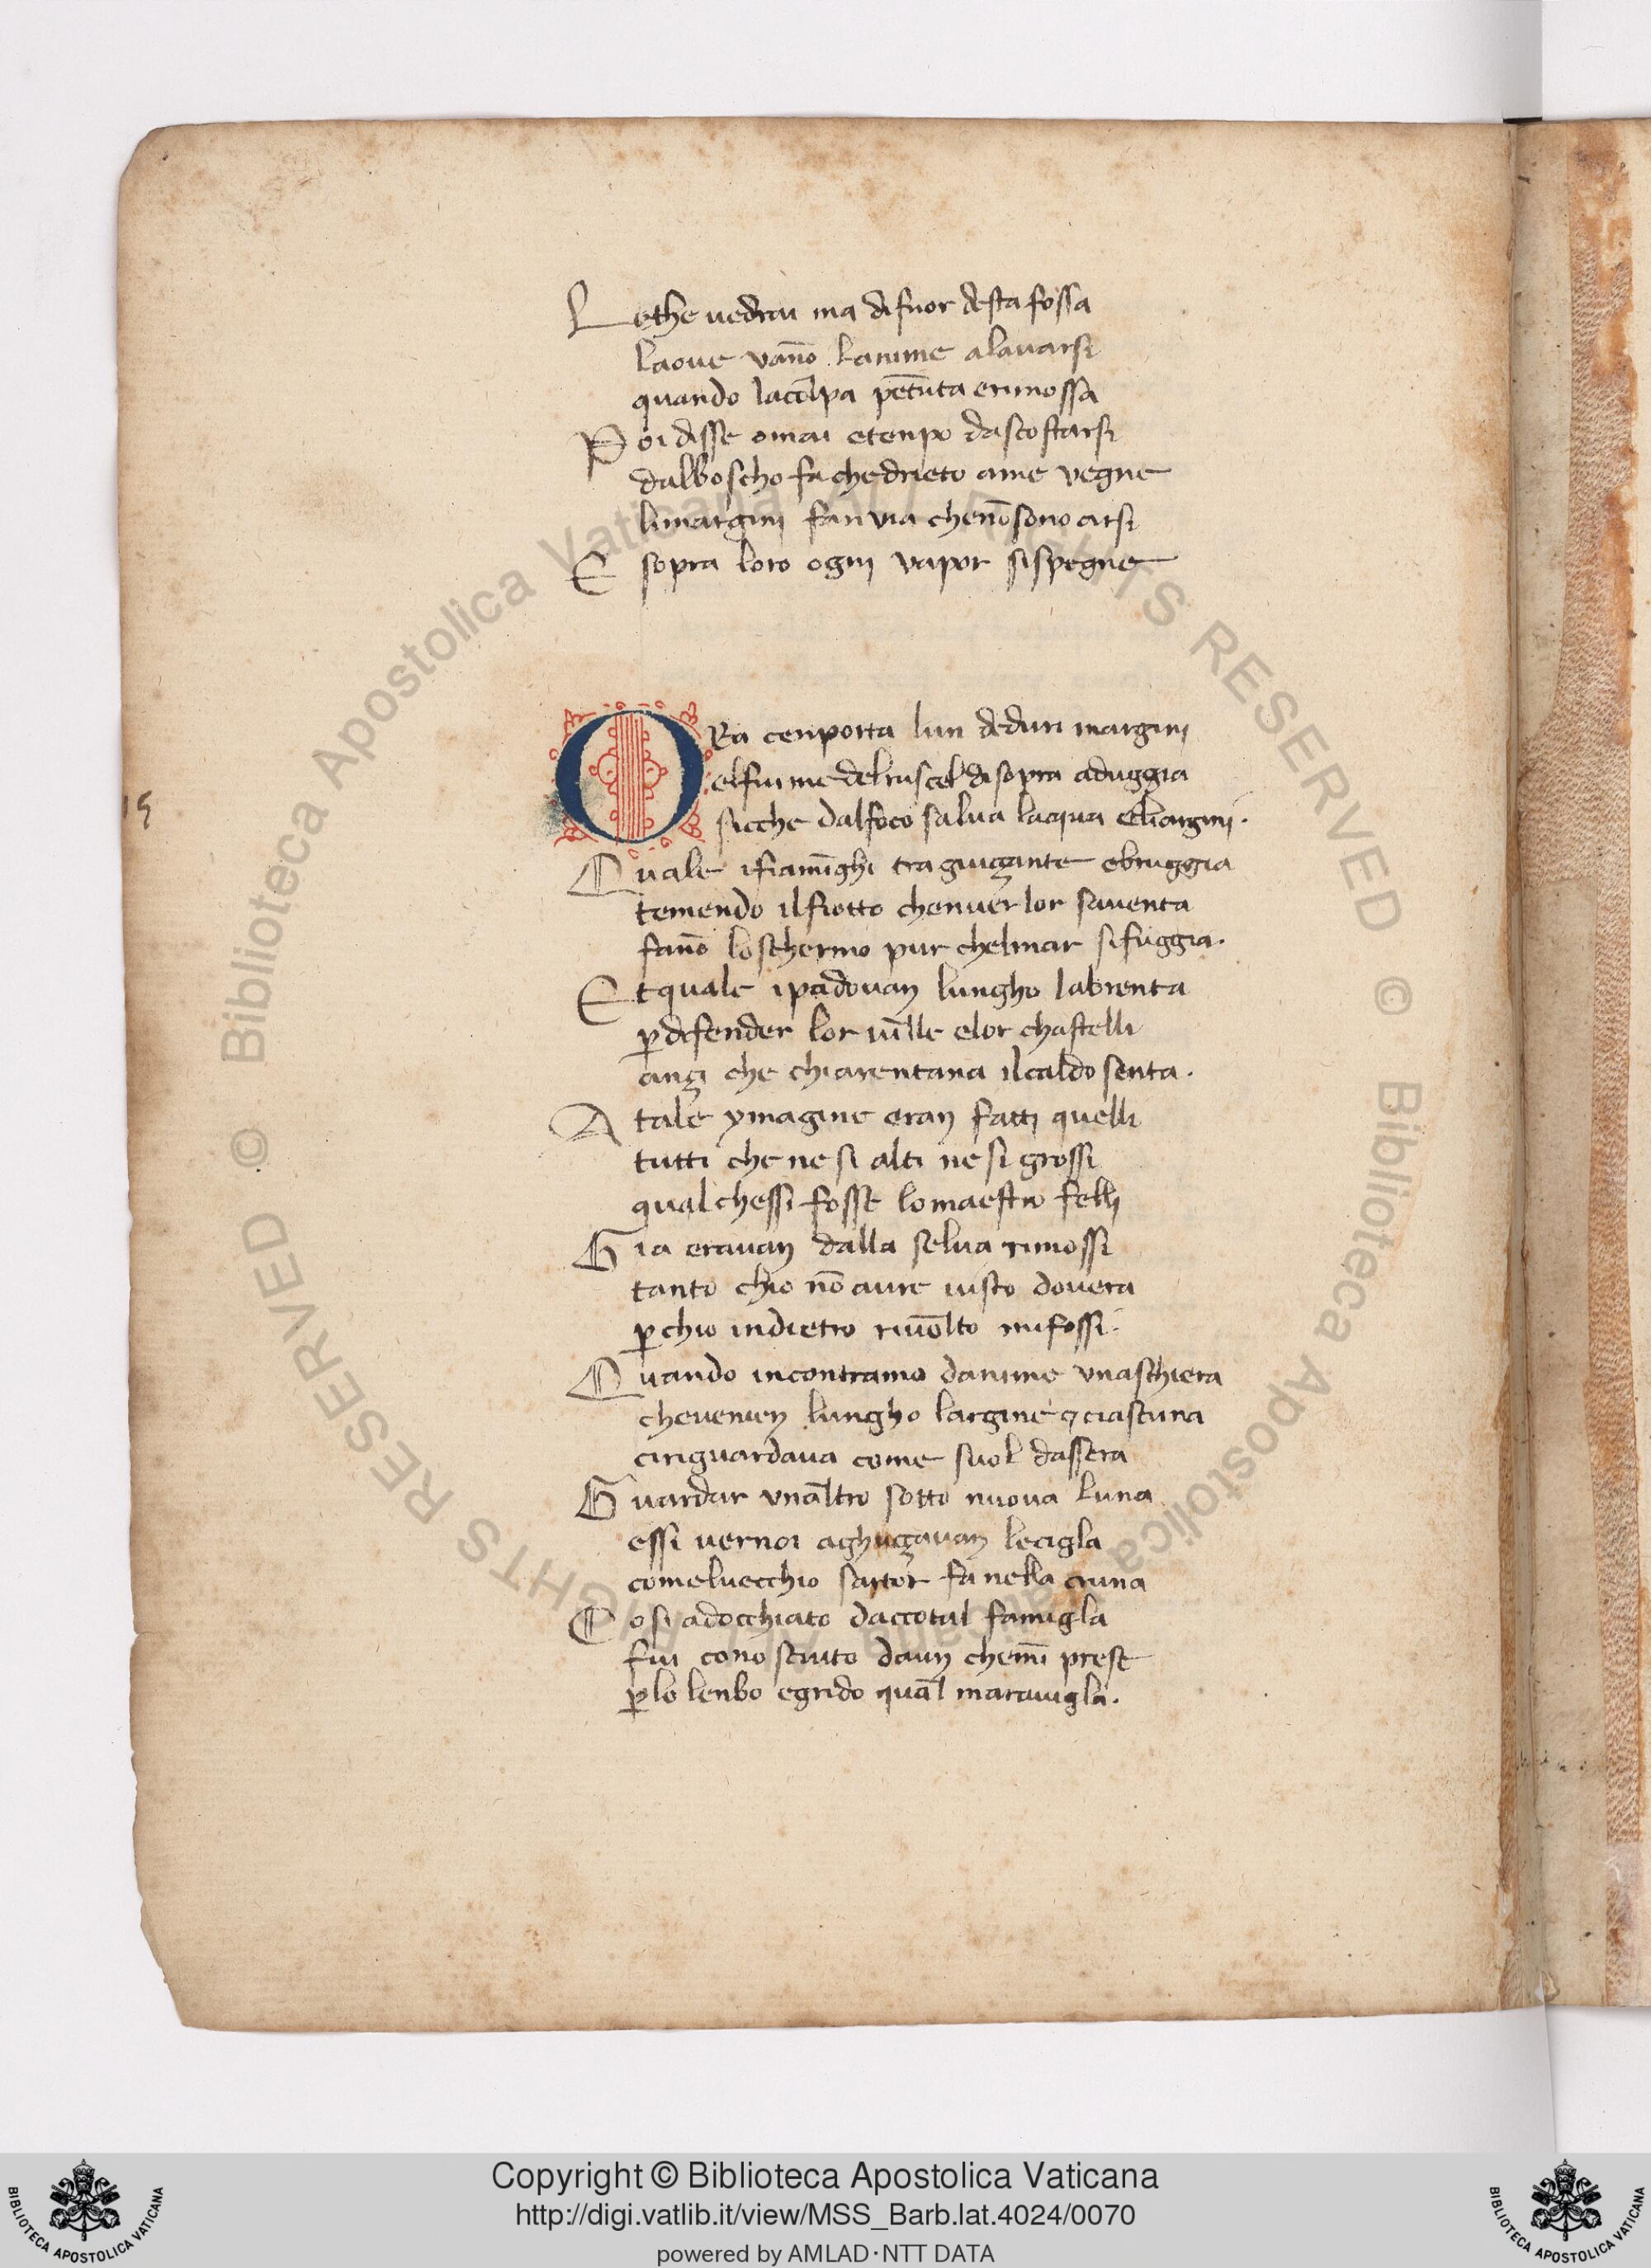 Lethe uedrai ma di fuor desta fossa
laoue vāno lanime alauarsi
quando lacolpa pētuta erimossa
Poi disse omai etenpo dascostarsi
dalboscho fa chedrieto ame vegne
limargini fan via chenō sono arsi
E sopra loro ogni vapor sispegne
ORa cenporta lun deduri margini
elfumme delruscel disopra aduggia
sicche dalfoco salua lacqua eliargini.
Quale ifiamīghi tra guigçante ebruggia
temendo ilfiotto chenuer lor sauenta
fano loschermo pur chelmar sifuggia.
Et quale ipadouan lungho labrenta
ꝑdifender lor uille elor chastelli
ançi che chiarentana ilcaldo senta.
A tale ymagine eran fatti quelli
tutti che ne si alti ne si grossi
qual chessi fosse lomaestro felli
Gia erauan dalla selua rimossi
tanto chio nō aure uisto douera
ꝑchio indietro riuolto mifossi.
Quando incontramo danime vnaschiera
cheuenien lungho largine ⁊ ciascuna
ciriguardaua come suol dassera
Guardar vnaltro sotto nuova luna
essi uernoi aghuçauan lecigla
comeluecchio sartor fa nella cruna
Cosi adocchiato daccotal famigla
fui conosciuto daun chemi prese
ꝑlo lenbo egrido qual marauigla.
19
© Biblioteca Apostolica Vaticana ALL RIGHTS RESERVED © Biblioteca Apostolica Vaticana ALL RIGHTS RESERVED
Copyright © Biblioteca Apostolica Vaticana
http://digi.vatlib.it/view/MSS_Barb.lat.4024/0070
powered by AMLAD·NTT DATA
BIBLIOTECA APOSTOLICA VATICANA
BIBLIOTECA APOSTOLICA VATICANA